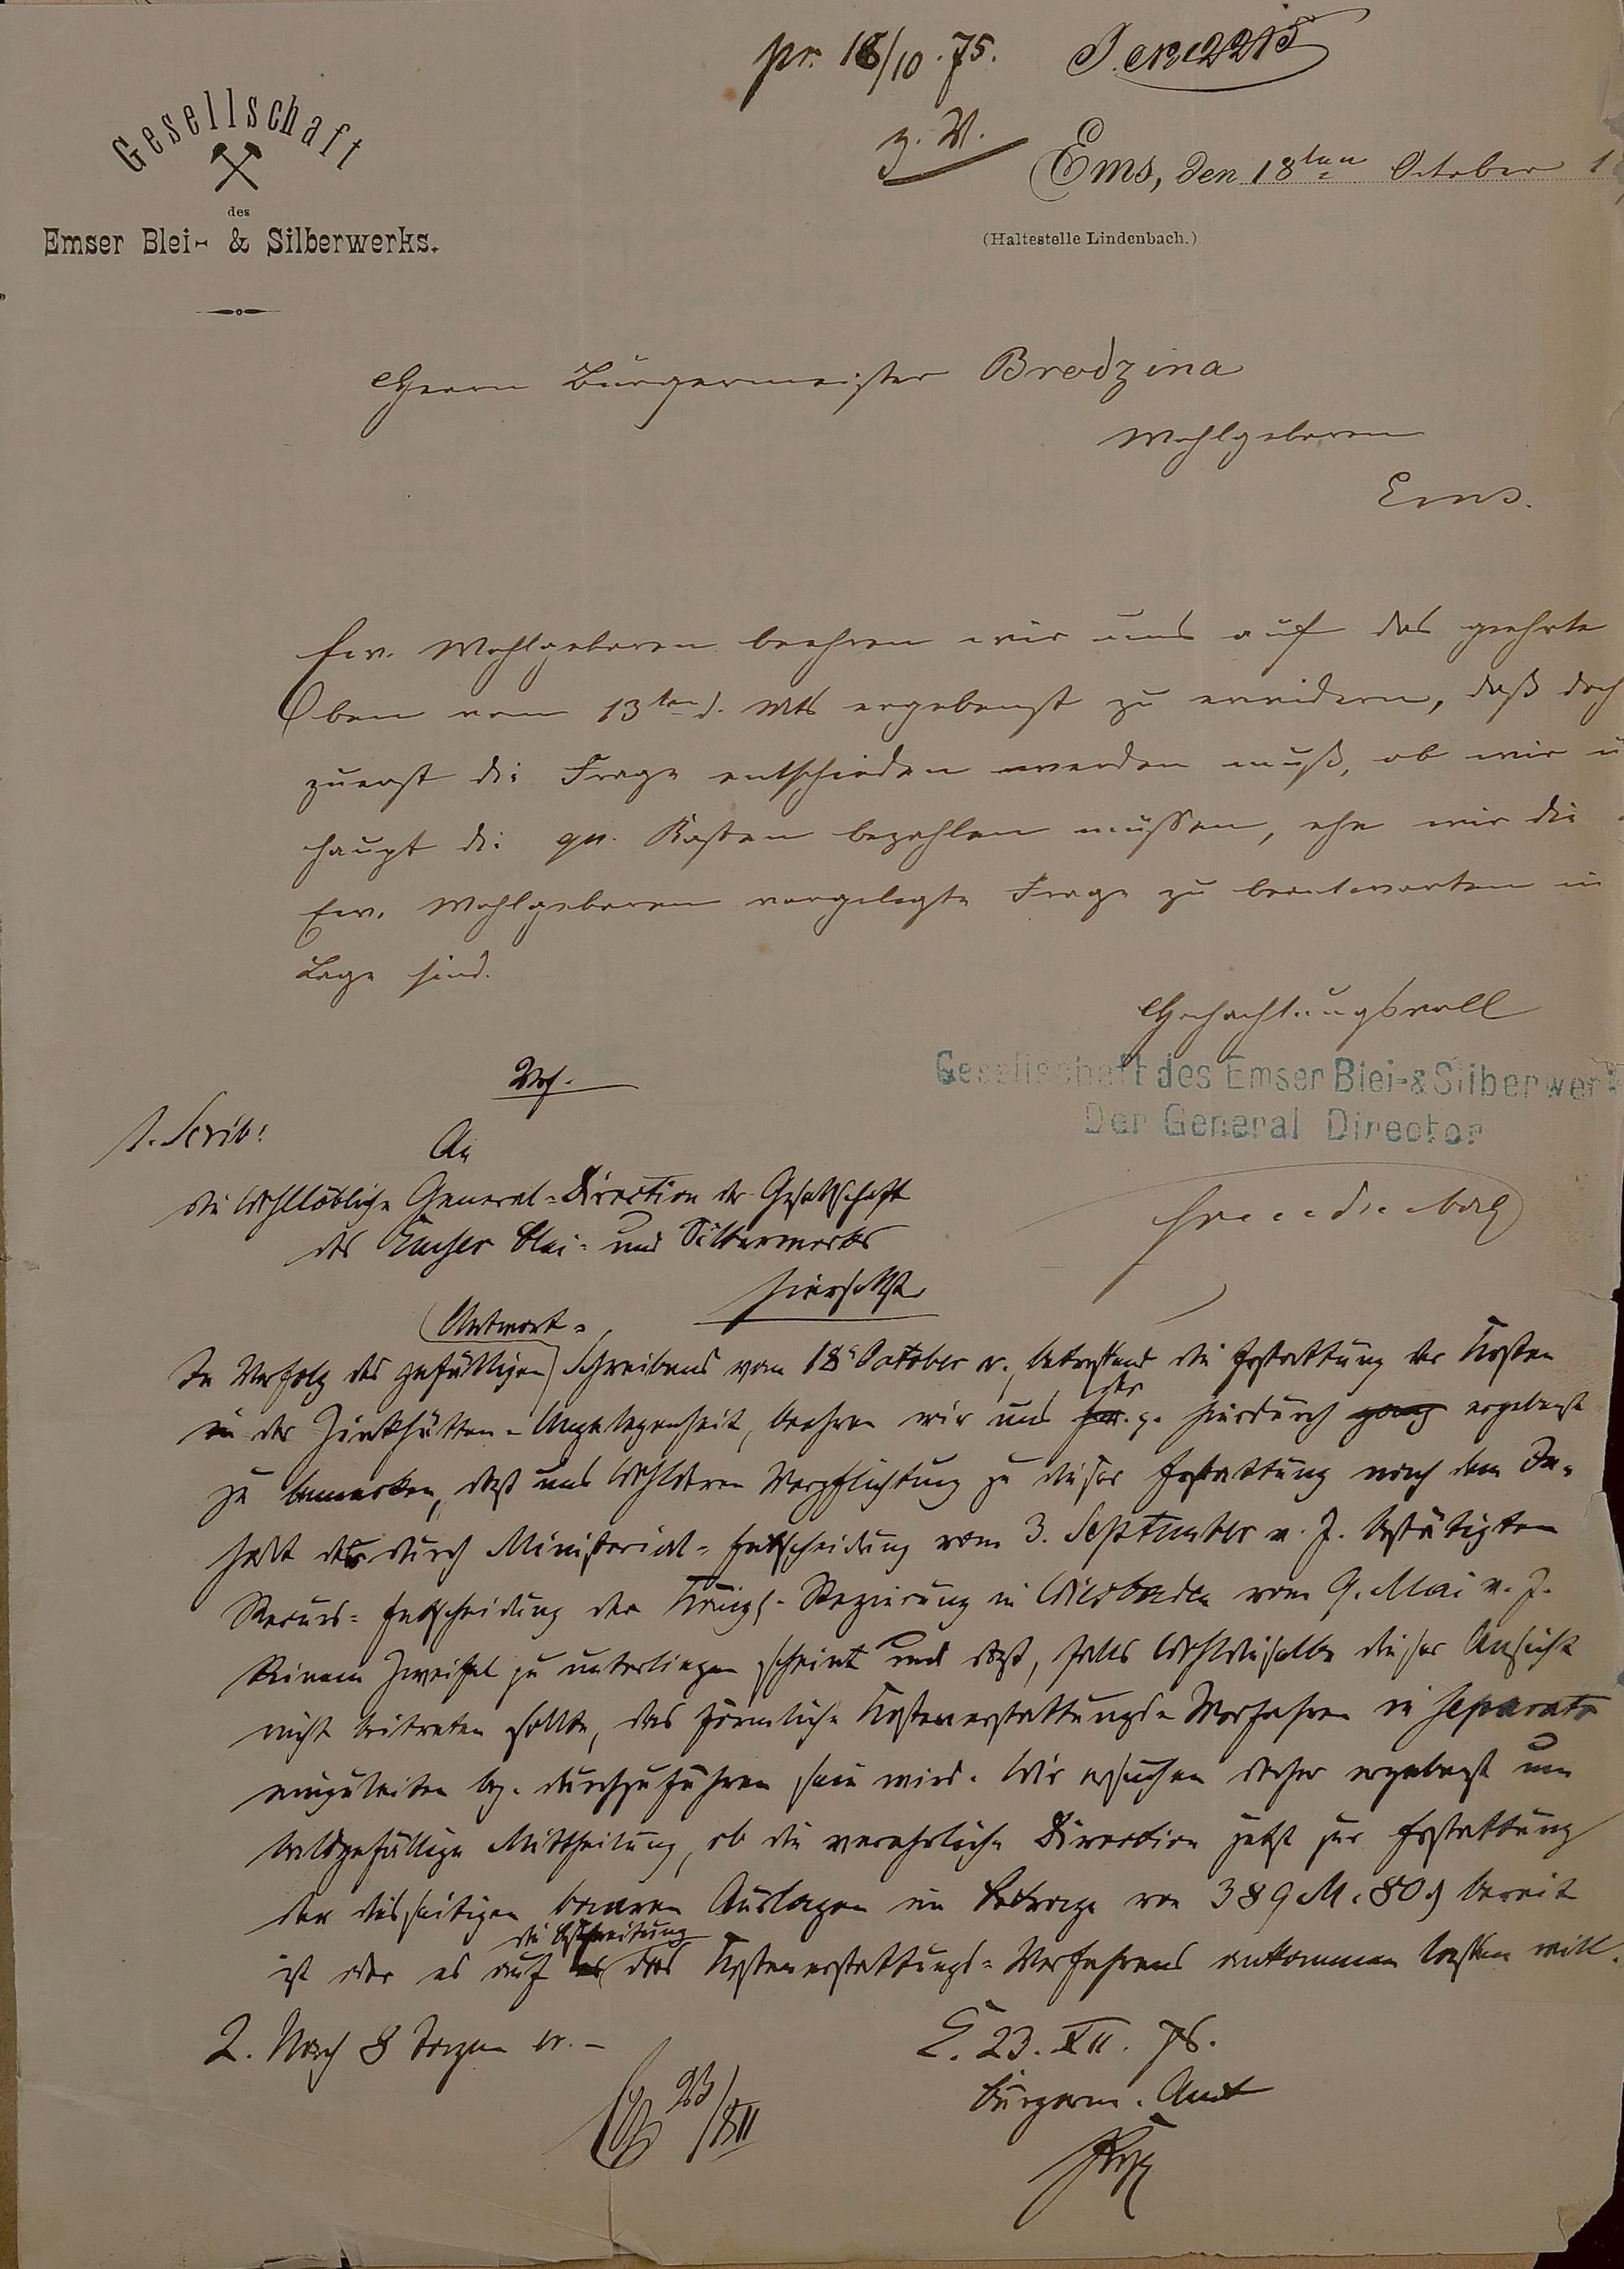 pr. 18/10. 75. J. N. 2215
z. V.
Gesellschaft
des
Emser Blei- & Silberwerks.
Ems, den 18ten October 1
(Haltestelle Lindenbach.)
Herrn Bürgermeister Brodzina
Wohlgeboren
Ems.
Ew. Wohlgeboren beehren wir uns auf das geehrte
Oben vom 13ten d. Mts ergebenst zu erwidern, daß doch
zuerst die Frage entschieden werden muß, ob wir ü
haupt die qu. Kosten bezahlen müssen, ehe wir die
Ew. Wohlgeboren vorgelegte Frage zu beantworten in
Lage sind.
Hochachtungsvoll
Gesellschaft des Emser Blei- & Silberwerk
Der General Director
Freudenberg
Vf.
1. Scrib:
An
die Wohllöbliche General-Direction der Gesellschaft
des Emser Blei- und Silberwerks
hierselbst
Antwort-
In Verfolg des gefälligen Schreibens vom 18. October c., betreffend die Erstattung der Kosten
in der Zinkhütten-Angelegenheit, beehren wir uns hierdurch ergebenst
zu bemerken, daß uns Wohlderen Verpflichtung zu dieser Erstattung nach dem In-
halt der durch Ministerial-Entscheidung vom 3. September v. J. bestätigten
Recurs-Entscheidung der Königl. Regierung in Wiesbaden vom 9. Mai v. J.
keinem Zweifel zu unterliegen scheint und daß, falls Wohldieselbe dieser Ansicht
nicht beitreten sollte, das förmliche Kostenerstattungs-Verfahren in separato
einzuleiten bz. durchzuführen sein wird. Wir ersuchen daher ergebenst um
baldgefällige Mittheilung, ob die verehrliche Direction jetzt zur Erstattung
der diesseitigen baaren Auslagen im Betrage von 389 M. 80 ₰ bereit
die Beschreitung
ist oder es auf des Kostenerstattungs-Verfahrens ankommen lassen will.
2. Nach 8 Tagen w. -
E. 23. XII. 75.
Bürgerm. Amt
23/XII